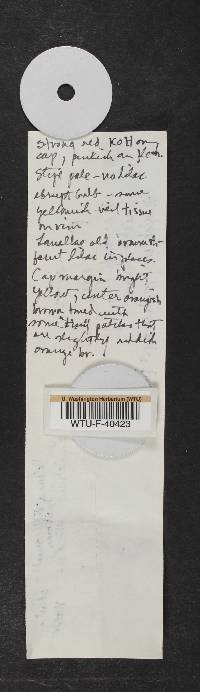 strong red KOH on
cap, pinkish on flesh
Stipe pale - no lilac
abrupt bulb - some
yellowish veil tissue
on rim
Lamellae old, brown with
faint lilac in places.
Cap margin bright
yellow, center orangish
brown tinged with
some patches that
are slightly reddish
orange br.
U. Washington Herbarium (WTU)
WTU-F-40423